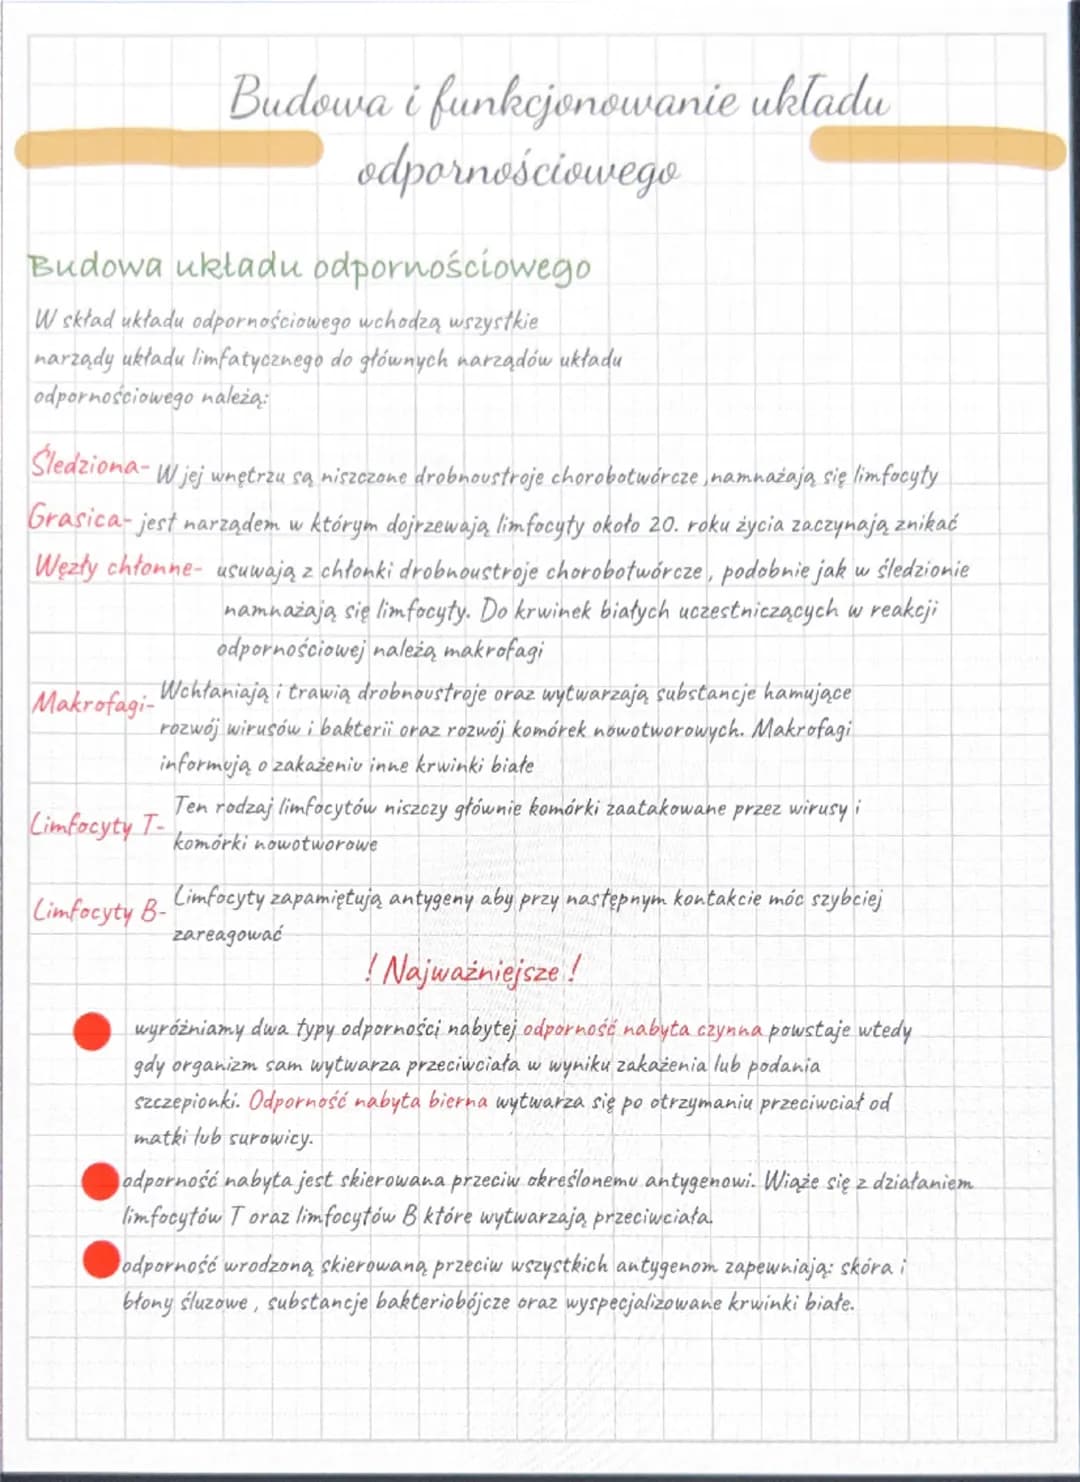 Budowa i funkcjonowanie układu
odpornościowego
Budowa układu odpornościowego
W skład układu odpornościowego wchodzą wszystkie
narządy układu limfatycznego do głównych narządów układu
odpornościowego należą:
Śledziona- W jej wnętrzu są niszczone drobnoustroje chorobotwórcze ,namnażają się limfocyty
Grasica- jest narządem w którym dojrzewają limfocyty około 20. roku życia zaczynają znikać
Węzły chłonne- usuwają z chłonki drobnoustroje chorobotwórcze , podobnie jak w śledzionie
namnażają się limfocyty. Do krwinek białych uczestniczących w reakcji
odpornościowej należą makrofagi
Makrofagi- Wchłaniają i trawią drobnoustroje oraz wytwarzają substancje hamujące
rozwój wirusów i bakterii oraz rozwój komórek nowotworowych. Makrofagi
informują o zakażeniu inne krwinki białe
Limfocyty T- Ten rodzaj limfocytów niszczy głównie komórki zaatakowane przez wirusy i
komórki nowotworowe
Limfocyty B- Limfocyty zapamiętują antygeny aby przy następnym kontakcie móc szybciej
zareagować
! Najważniejsze !
wyróżniamy dwa typy odporności nabytej odporność nabyta czynna powstaje wtedy
gdy organizm sam wytwarza przeciwciała w wyniku zakażenia lub podania
szczepionki. Odporność nabyta bierna wytwarza się po otrzymaniu przeciwciał od
matki lub surowicy.
odporność nabyta jest skierowana przeciw określonemu antygenowi. Wiąże się z działaniem
limfocytów T oraz limfocytów B które wytwarzają przeciwciała.
odporność wrodzoną skierowaną przeciw wszystkich antygenom zapewniają: skóra i
błony śluzowe , substancje bakteriobójcze oraz wyspecjalizowane krwinki białe.